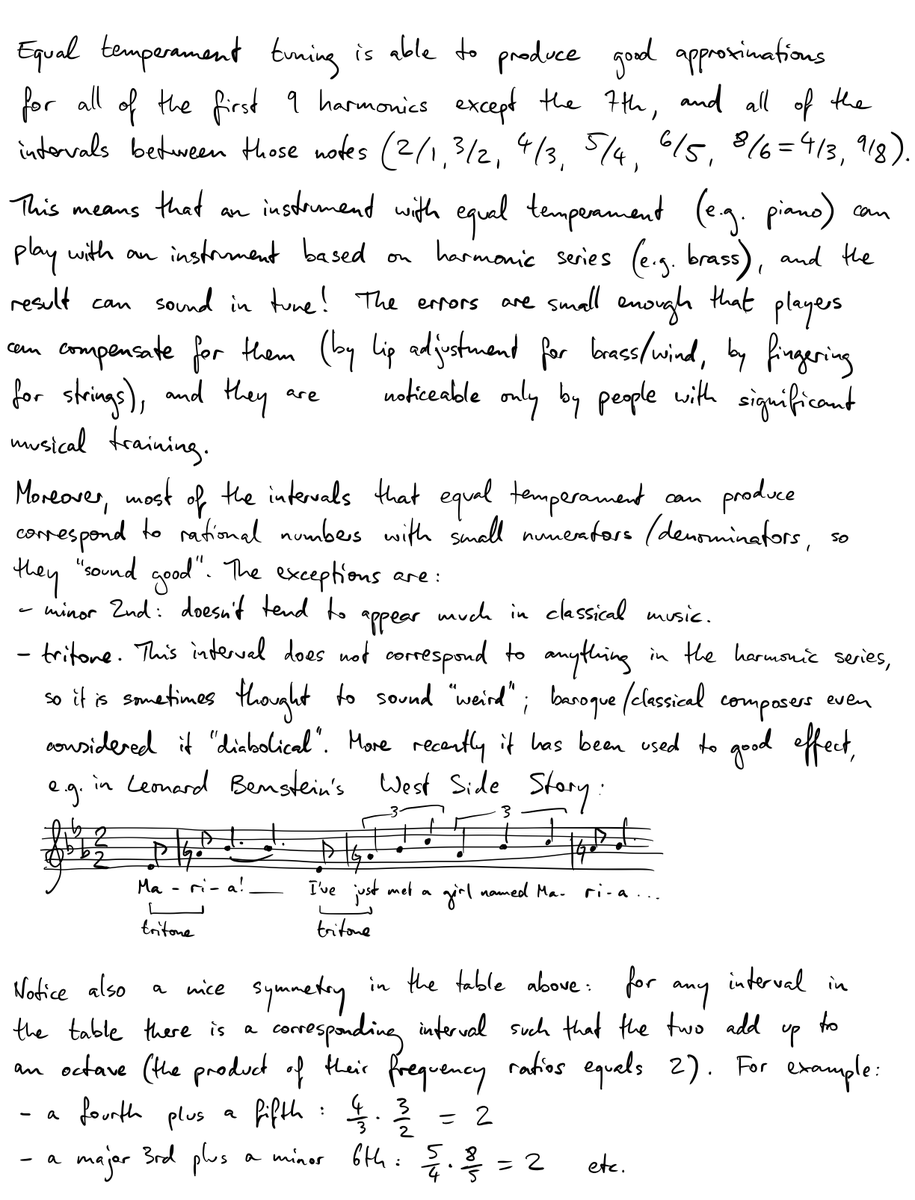 Equal temperament tuning is able to produce good approximations
for all of the first 9 harmonics except the 7th, and all of the
intervals between those notes (2/1, 3/2, 4/3, 5/4, 6/5, 8/6=4/3, 9/8).
This means that an instrument with equal temperament (e.g. piano) can
play with an instrument based on harmonic series (e.g. brass), and the
result can sound in tune! The errors are small enough that players
can compensate for them (by lip adjustment for brass/wind, by fingering
for strings), and they are noticeable only by people with significant
musical training.
Moreover, most of the intervals that equal temperament can produce
correspond to rational numbers with small numerators/denominators, so
they "sound good". The exceptions are:
- minor 2nd: doesn't tend to appear much in classical music.
- tritone. This interval does not correspond to anything in the harmonic series,
so it is sometimes thought to sound "weird"; baroque/classical composers even
considered it "diabolical". More recently it has been used to good effect,
e.g. in Leonard Bernstein's West Side Story:
3 3
2
2
Ma - ri - a! I've just met a girl named Ma- ri-a...
tritone tritone
Notice also a nice symmetry in the table above: for any interval in
the table there is a corresponding interval such that the two add up to
an octave (the product of their frequency ratios equals 2). For example:
- a fourth plus a fifth: 4/3 · 3/2 = 2
- a major 3rd plus a minor 6th: 5/4 · 8/5 = 2 etc.